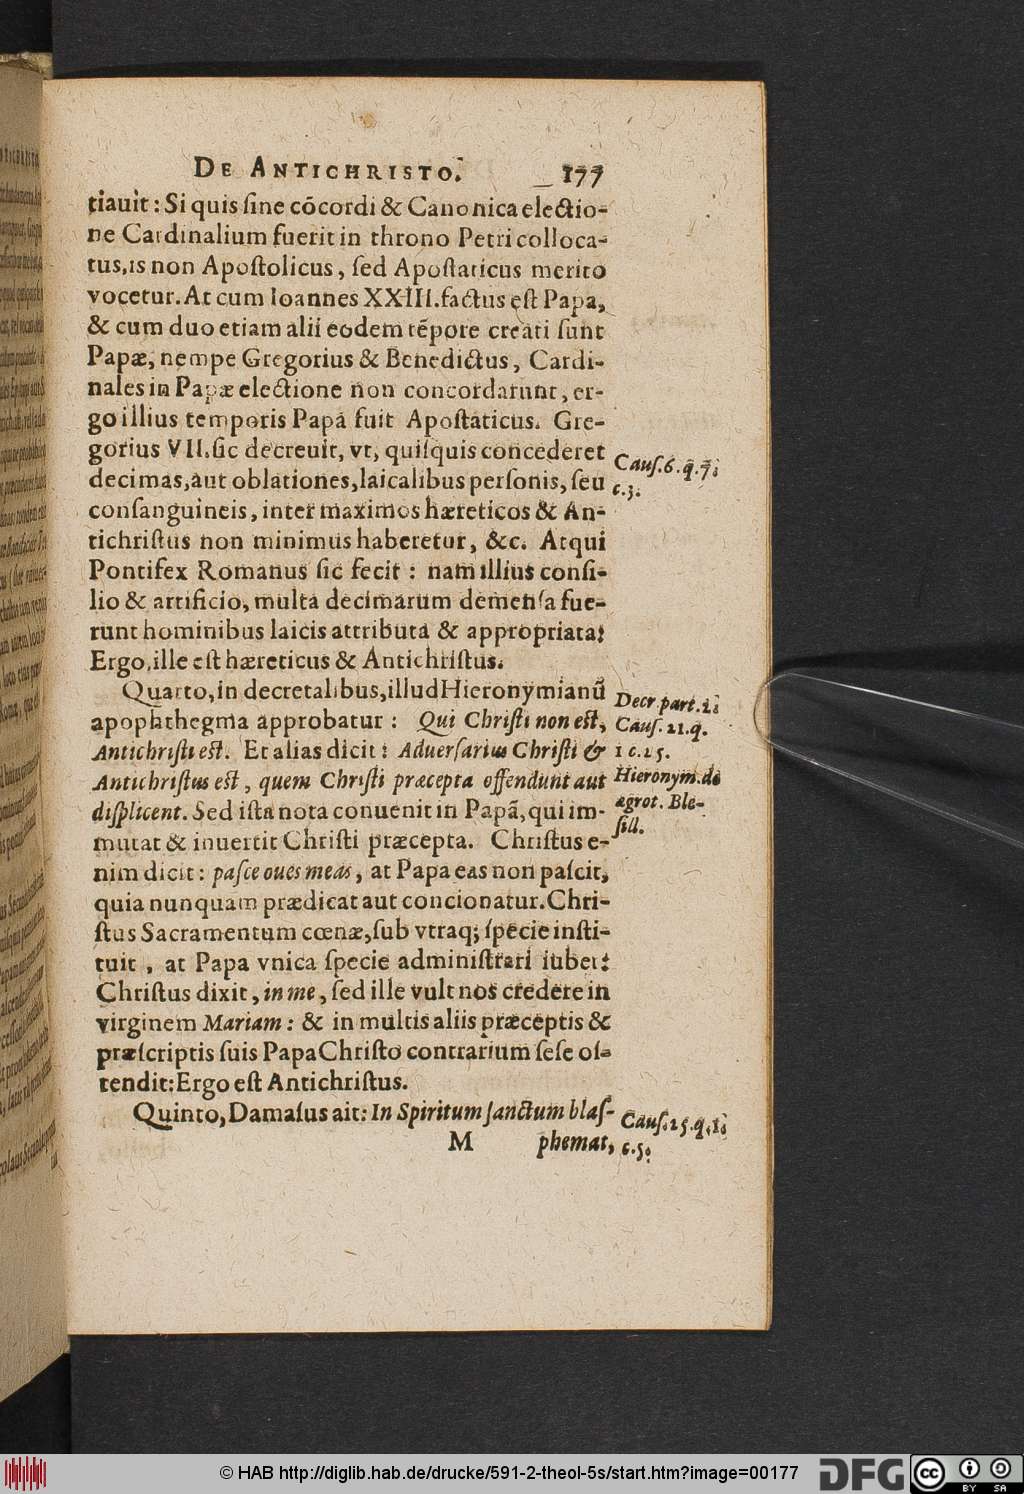 DE ANTICHRISTO. 177
tiauit: Si quis ſine cõcordi & Canonica electio-
ne Cardinalium fuerit in throno Petri colloca-
tus, is non Apoſtolicus, ſed Apoſtaticus merito
vocetur. At cum Ioannes XXIII. factus eſt Papa,
& cum duo etiam alii eodem tẽpore creati ſunt
Papæ, nempe Gregorius & Benedictus, Cardi-
nales in Papæ electione non concordarunt, er-
go illius temporis Papa fuit Apoſtaticus. Gre-
gorius VII. ſic decreuit, vt, quiſquis concederet
decimas, aut oblationes, laicalibus perſonis, ſeu
conſanguineis, inter maximos hæreticos & An-
tichriſtus non minimus haberetur, &c. Atqui
Pontifex Romanus ſic fecit: nam illius conſi-
lio & artificio, multa decimarum demenſa fue-
runt hominibus laicis attributa & appropriata:
Ergo, ille eſt hæreticus & Antichriſtus.
Cauſ. 6. q. 7.
c. 3.
Quarto, in decretalibus, illud Hieronymianũ
apophthegma approbatur: Qui Chriſti non eſt,
Antichriſti eſt. Et alias dicit: Aduerſarius Chriſti &
Antichriſtus eſt, quem Chriſti præcepta offendunt aut
diſplicent. Sed iſta nota conuenit in Papã, qui im-
mutat & inuertit Chriſti præcepta. Chriſtus e-
nim dicit: paſce oues meas, at Papa eas non paſcit,
quia nunquam prædicat aut concionatur. Chri-
ſtus Sacramentum cœnæ, ſub vtraq; ſpecie inſti-
tuit, at Papa vnica ſpecie adminiſtrari iubet:
Chriſtus dixit, in me, ſed ille vult nos credere in
virginem Mariam: & in multis aliis præceptis &
præſcriptis ſuis Papa Chriſto contrarium ſeſe oſ-
tendit: Ergo eſt Antichriſtus.
Decr. part. 2.
Cauſ. 11. q.
1 c. 15.
Hieronym. de
ægrot. Ble-
ſill.
Quinto, Damaſus ait: In Spiritum ſanctum blaſ-
M phemat,
Cauſ. 25. q. 1.
c. 5.
© HAB http://diglib.hab.de/drucke/591-2-theol-5s/start.htm?image=00177
DFG
cc BY SA